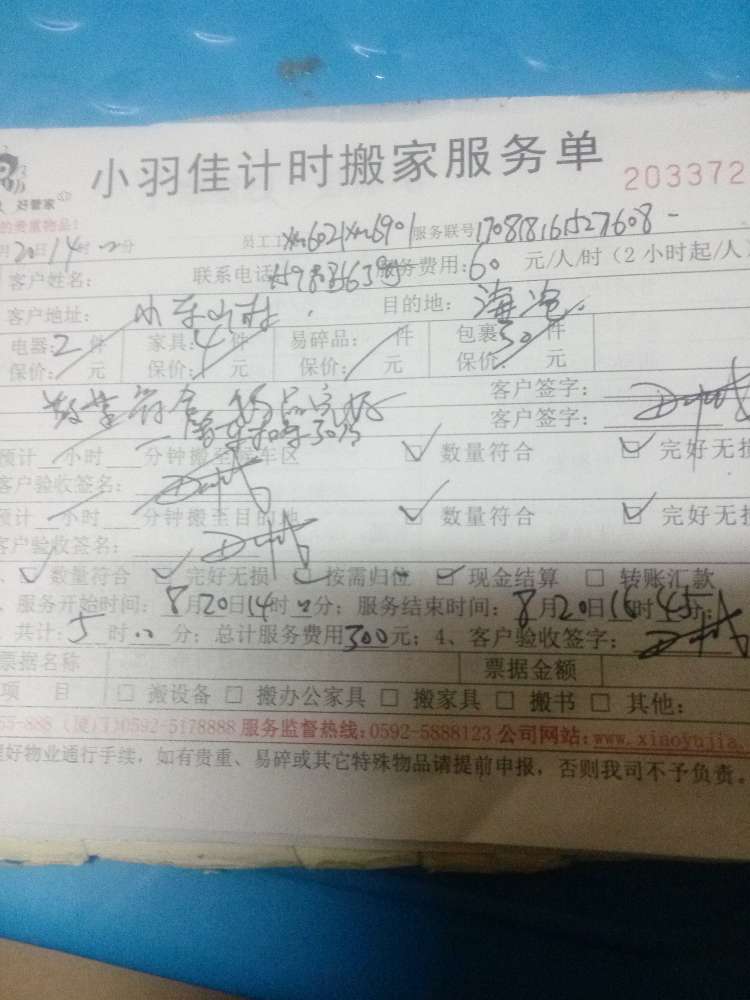 小羽佳计时搬家服务单
203372
好管家
的贵重物品!
月20日14时00分 员工工 xm6021 xm6901 服务联号 170818161527608
客户姓名: 联系电话 服务费用:60 元/人/时(2小时起/人
客户地址: 小东山社 目的地: 海沧
电器:2件 家具:4件 易碎品: 件 包裹:30件
保价: 元 保价: 元 保价: 元 保价: 元
数量符合 物品完好 客户签字:
客户签字:
预计 小时 分钟搬至候车区 ☑ 数量符合 ☑ 完好无损
客户验收签名:
预计 小时 分钟搬至目的地 ☑ 数量符合 ☑ 完好无损
客户验收签名:
☑ 数量符合 ☑ 完好无损 ☑ 按需归位 ☑ 现金结算 □ 转账汇款
服务开始时间:8月20日14时00分;服务结束时间:8月20日16时45分;
共计:5时00分;总计服务费用300元;4、客户验收签字:
票据名称 票据金额
项 目 □ 搬设备 □ 搬办公家具 □ 搬家具 □ 搬书 □ 其他:
55-888 (厦门)0592-5178888 服务监督热线:0592-5888123 公司网站:www.xiaoyujia.
理好物业通行手续,如有贵重、易碎或其它特殊物品请提前申报,否则我司不予负责。